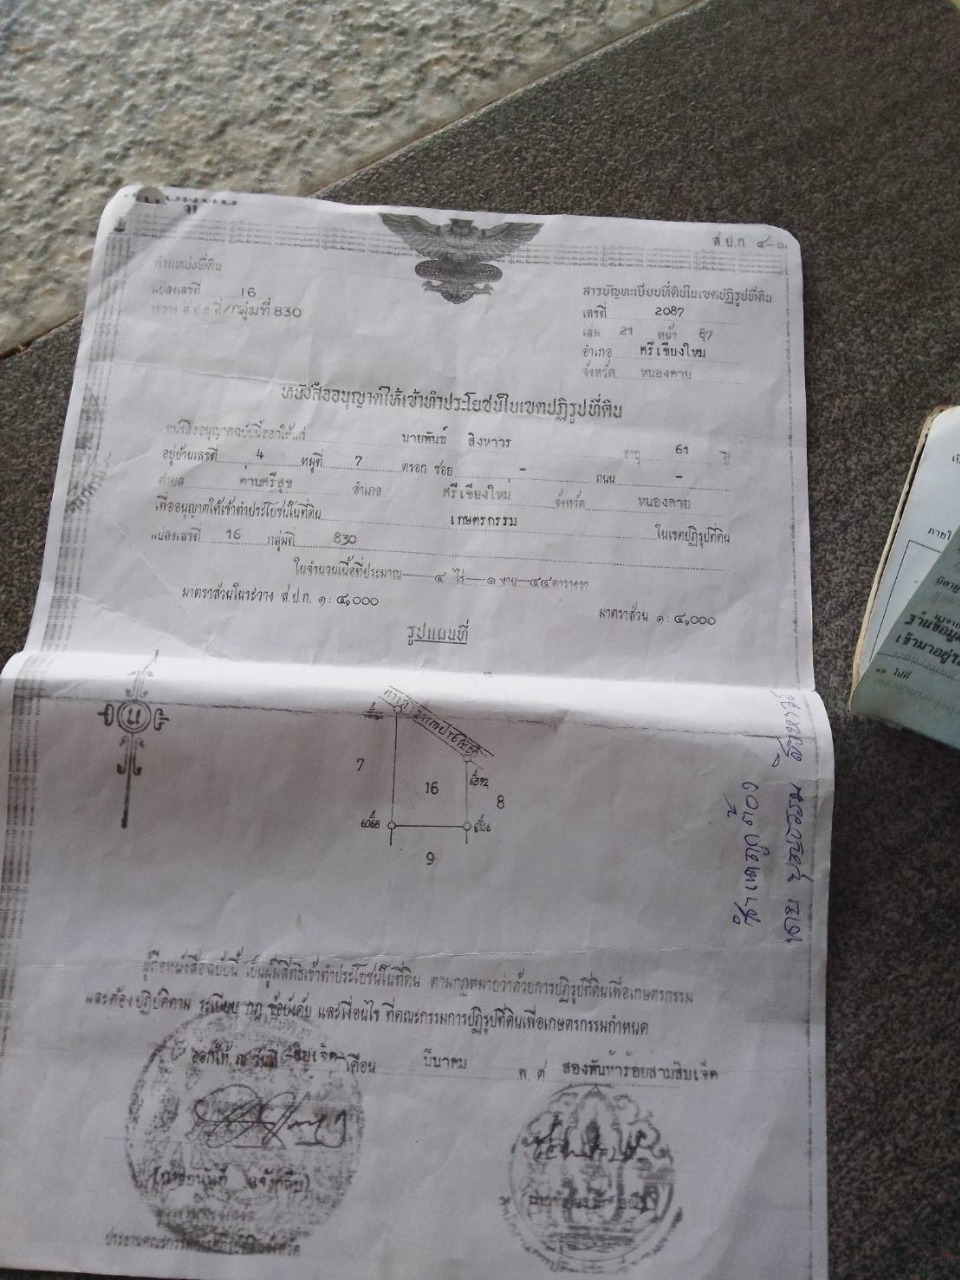 ส.ป.ก ๔-๐๑
ตำแหน่งที่ดิน
แปลงเลขที่ 16
ระวาง ส.ป.ก.ที่/กลุ่มที่ 830
สารบัญทะเบียนที่ดินในเขตปฏิรูปที่ดิน
เลขที่ 2087
เล่ม 21 หน้า 87
อำเภอ ศรีเชียงใหม่
จังหวัด หนองคาย
หนังสืออนุญาตให้เข้าทำประโยชน์ในเขตปฏิรูปที่ดิน
หนังสืออนุญาตฉบับนี้ออกให้แก่ นายพันธ์ สิงหาวร อายุ 61 ปี
อยู่บ้านเลขที่ 4 หมู่ที่ 7 ตรอก ซอย - ถนน -
ตำบล ด่านศรีสุข อำเภอ ศรีเชียงใหม่ จังหวัด หนองคาย
เพื่ออนุญาตให้เข้าทำประโยชน์ในที่ดิน เกษตรกรรม ในเขตปฏิรูปที่ดิน
แปลงเลขที่ 16 กลุ่มที่ 830
ในจำนวนเนื้อที่ประมาณ ๔ ไร่ ๑ งาน ๔๔ ตารางวา
มาตราส่วนในระวาง ส.ป.ก. ๑ : ๔,๐๐๐ มาตราส่วน ๑ : ๔,๐๐๐
รูปแผนที่
น
7
16
8
9
ผู้ถือหนังสือฉบับนี้ เป็นผู้มีสิทธิเข้าทำประโยชน์ในที่ดิน ตามกฎหมายว่าด้วยการปฏิรูปที่ดินเพื่อเกษตรกรรม
และต้องปฏิบัติตาม ระเบียบ กฎ ข้อบังคับ และเงื่อนไข ที่คณะกรรมการปฏิรูปที่ดินเพื่อเกษตรกรรมกำหนด
ออกให้ ณ วันที่ สิบเจ็ด เดือน มีนาคม พ.ศ สองพันห้าร้อยสามสิบเจ็ด
ฐานข้อมูล